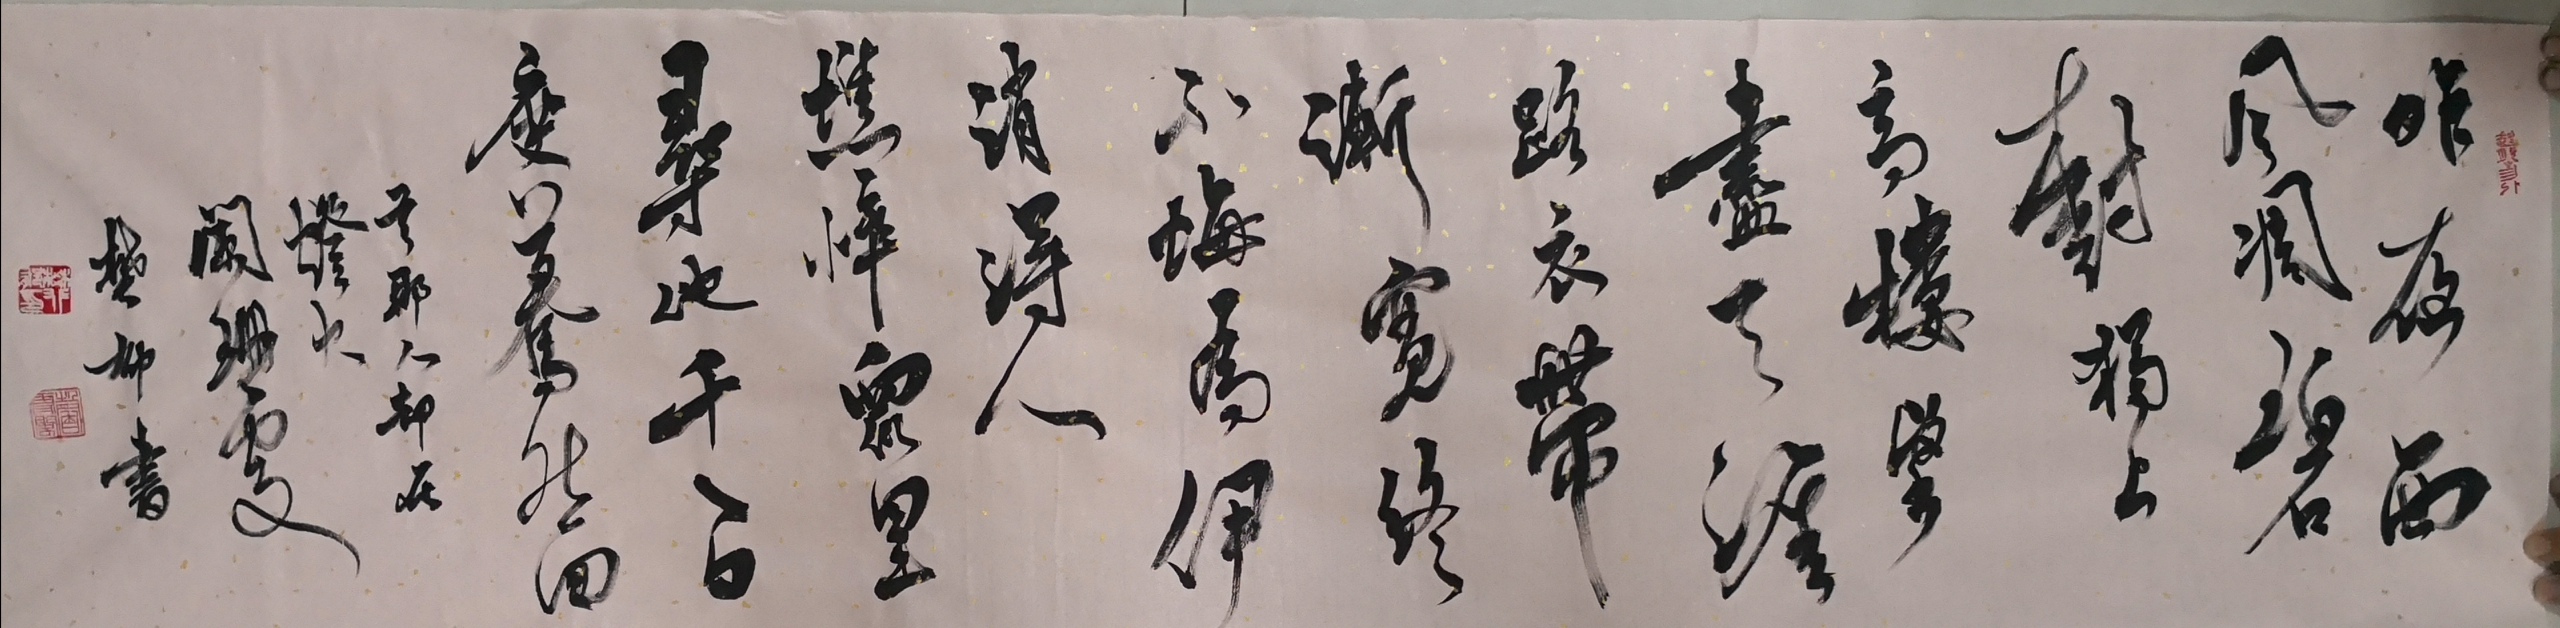 昨夜西
风凋碧
樹獨上
高樓望
盡天涯
路衣帶
漸寬終
不悔為伊
消得人
憔悴眾里
尋他千百
度驀然回
首那人却在
燈火
闌珊處
書